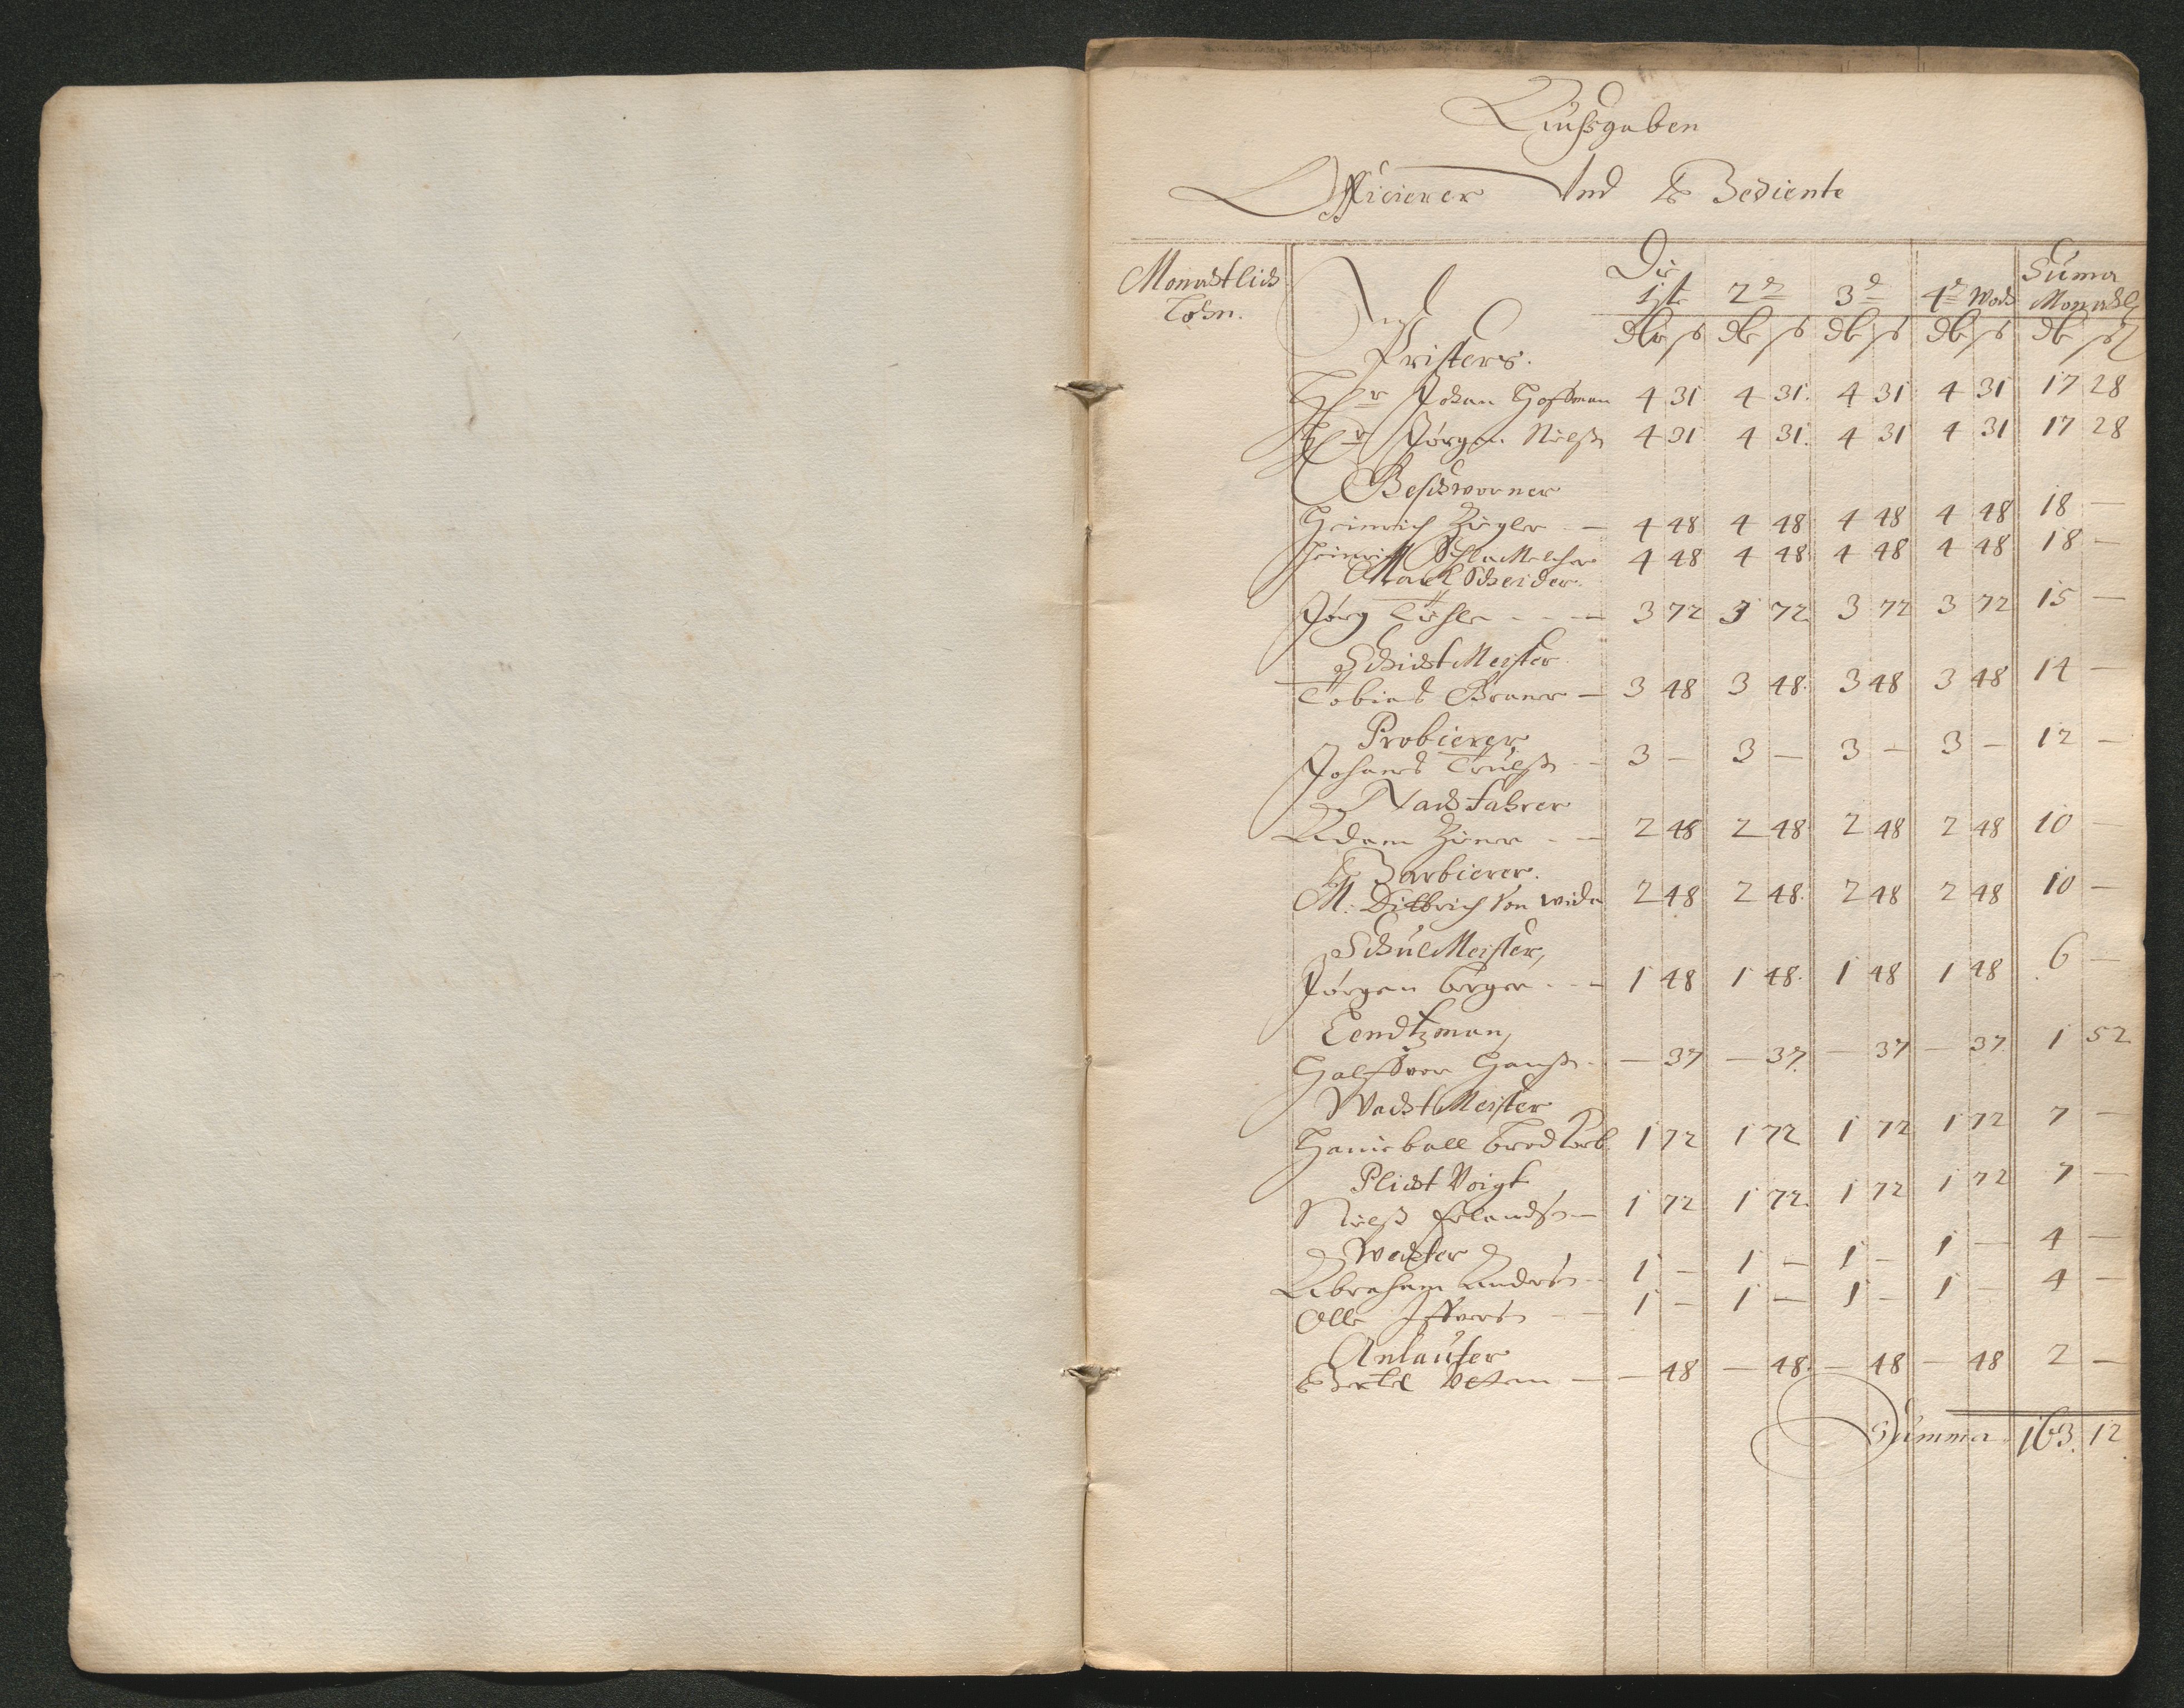 Außgaben
Officierer Und Bediente
Monachtlich
Lohn.
Die
1ste 2de 3de 4de Woch Suma
Monachtl
Als
dlr ß dlr ß dlr ß dlr ß dlr ß
Pristers.
Hr Johan Hoffman 4 31 4 31 4 31 4 31 17 28
Hr Jörgen Nielß 4 31 4 31 4 31 4 31 17 28
Beschworner
Heinrich Ziegler — 4 48 4 48 4 48 4 48 18 —
Heinrich Schlamelcher 4 48 4 48 4 48 4 48 18 —
Marckscheider.
Jörg — 3 72 3 72 3 72 3 72 15 —
SchichtMeister
Tobias Braner — 3 48 3 48 3 48 3 48 14 —
Probierer,
Johanes Truelß 3 — 3 — 3 — 3 — 12 —
Nachfahrer
Adam — 2 48 2 48 2 48 2 48 10 —
Barbierer.
M: Dittrich Von 2 48 2 48 2 48 2 48 10 —
SchulMeister,
Jörgen Berger — 1 48 1 48 1 48 1 48 6 —
Lendtzman,
Halffvor Hanß — 37 — 37 — 37 — 37 1 52
WachtMeister
Haniball 1 72 1 72 1 72 1 72 7 —
Plicht Voigt
Nielß Erlandß — 1 72 1 72 1 72 1 72 7 —
Wechter
Abraham Anders 1 — 1 — 1 — 1 — 4 —
Olle Iffvers 1 — 1 — 1 — 1 — 4 —
Anlauffer
Bertel — — 48 — 48 — 48 — 48 2 —
Summa 163. 12